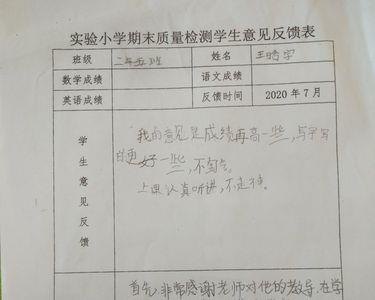 实验小学期末质量检测学生意见反馈表
班级 二年五班 姓名 王晴宇
数学成绩 语文成绩
英语成绩 反馈时间 2020年7月
学生意见反馈
我的意见是成绩再高一些,写字写
的更好一些,不淘气。
上课认真听讲,不走神。
首先,非常感谢老师对他的教导,在学